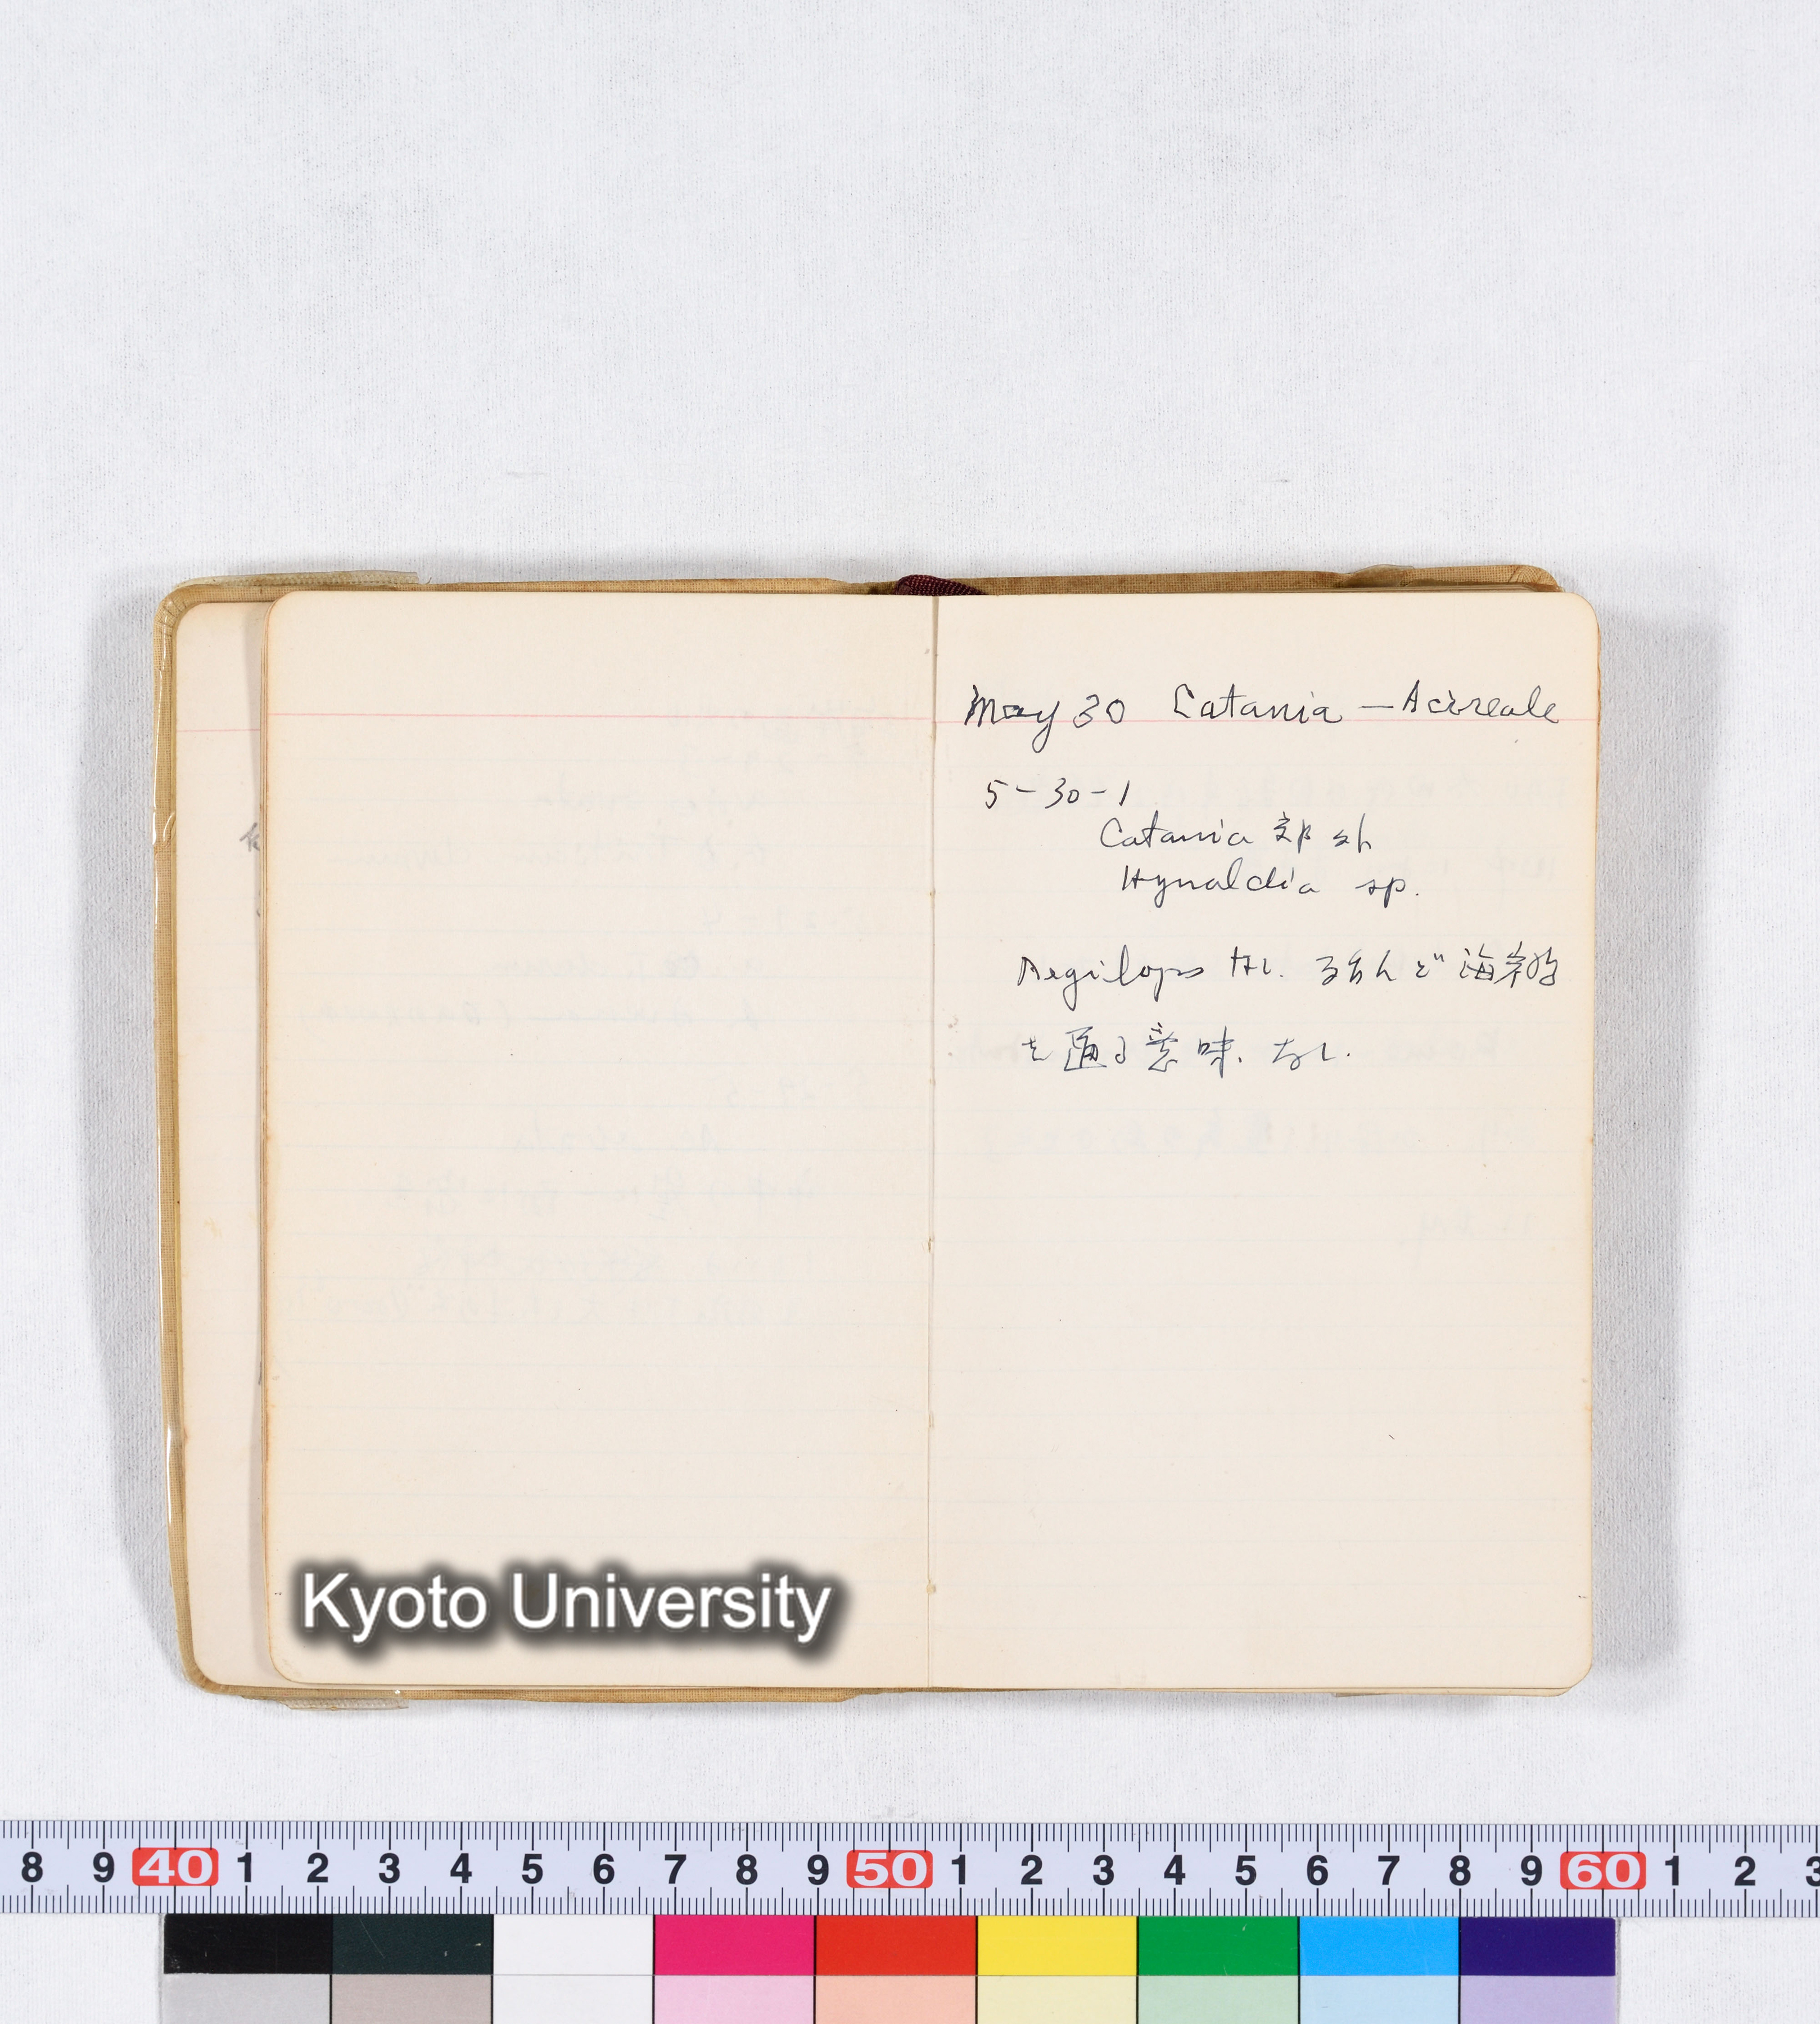 May 30 Catania — Acireale
5-30-1
Catania 郊外
Hynaldia sp.
Aegilops なし. ほとんど 海岸
を通る意味.なし.
Kyoto University
8 9 40 1 2 3 4 5 6 7 8 9 50 1 2 3 4 5 6 7 8 9 60 1 2 3